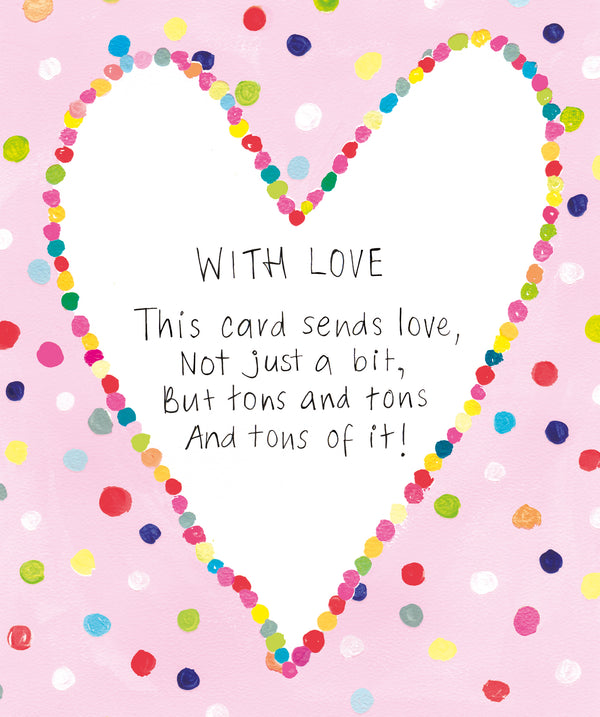 WITH LOVE
This card sends love,
Not just a bit,
But tons and tons
And tons of it!